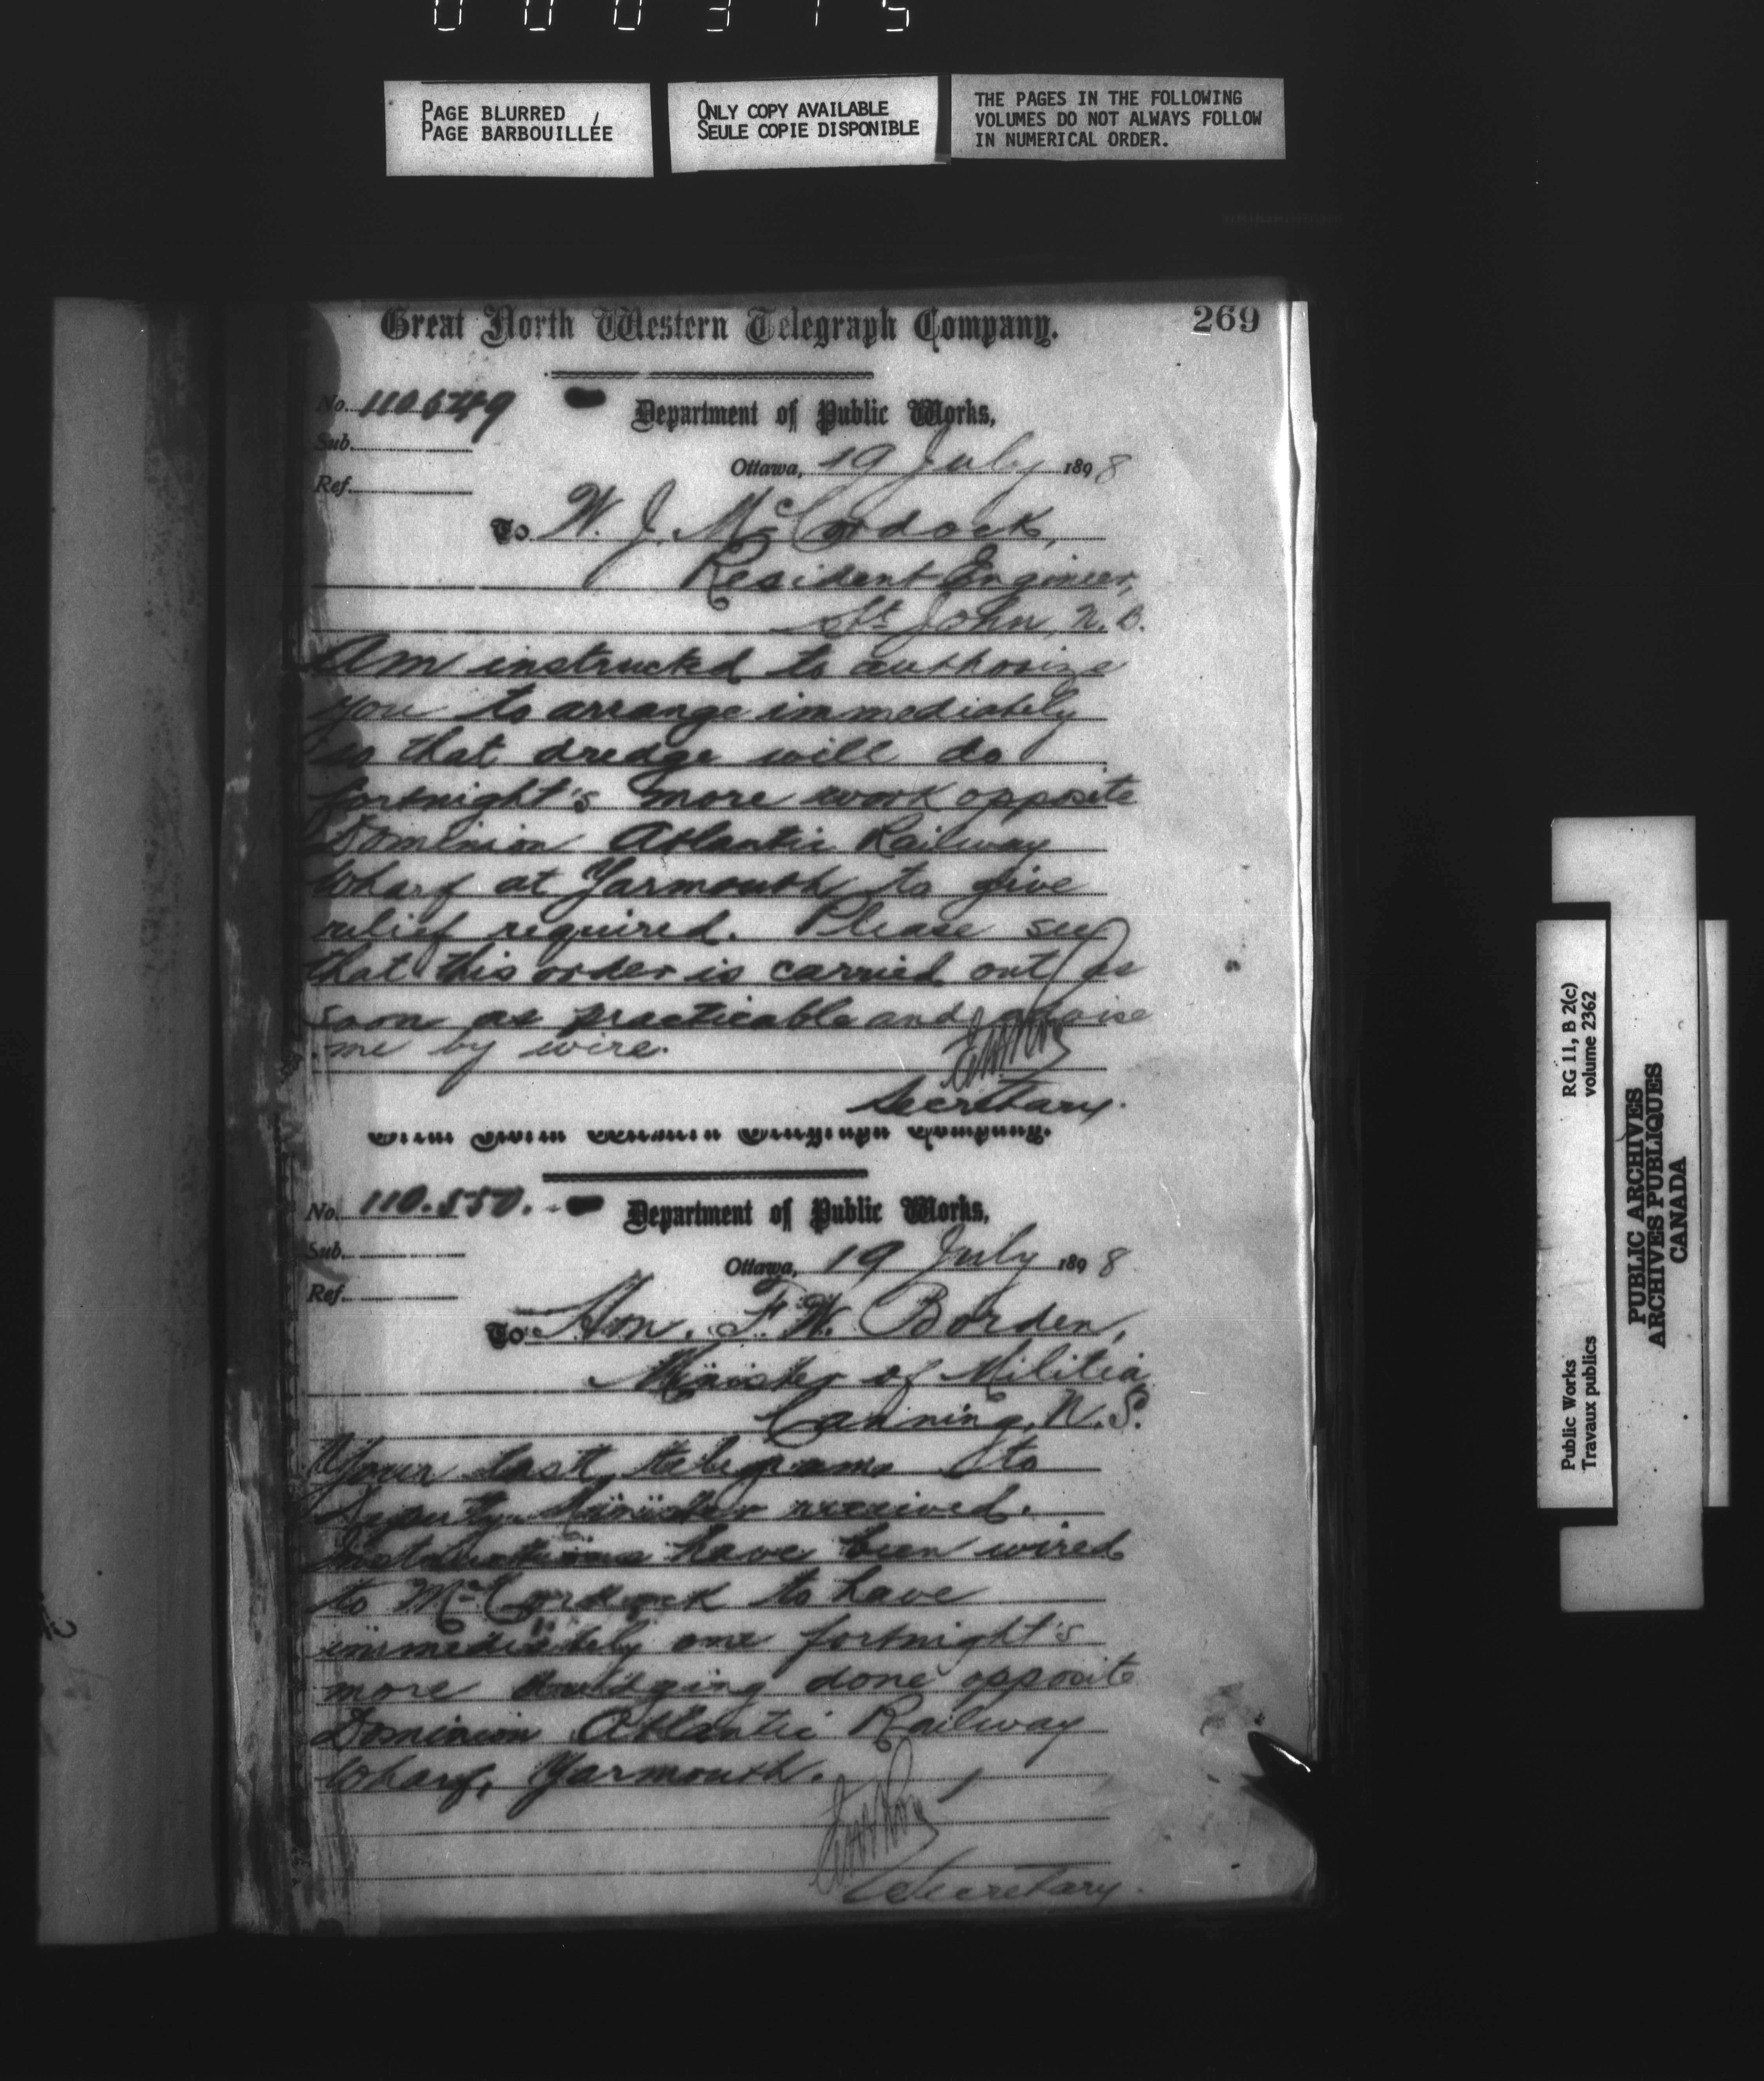 000315
PAGE BLURRED
PAGE BARBOUILLÉE
ONLY COPY AVAILABLE
SEULE COPIE DISPONIBLE
THE PAGES IN THE FOLLOWING
VOLUMES DO NOT ALWAYS FOLLOW
IN NUMERICAL ORDER.
Great North Western Telegraph Company.
269
No. 110549
Department of Public Works,
Sub.
Ottawa, 19 July 1898
Ref.
To W. J. McCordock,
Resident Engineer,
St John, N.B.
Am instructed to authorize
you to arrange immediately
so that dredge will do
fortnight's more work opposite
Dominion Atlantic Railway
Wharf at Yarmouth to give
relief required. Please see
that this order is carried out as
soon as practicable and advise
me by wire.
Secretary.
Great North Western Telegraph Company.
No. 110.550.
Department of Public Works,
Sub.
Ottawa, 19 July 1898
Ref.
To Hon. F. W. Borden,
Minister of Militia
Canning, N.S.
Your last telegrams to
Deputy Minister received.
Instructions have been wired
to McCordock to have
immediately one fortnight's
more dredging done opposite
Dominion Atlantic Railway
Wharf, Yarmouth.
Secretary.
Public Works
Travaux publics
RG 11, B 2(c)
volume 2362
PUBLIC ARCHIVES
ARCHIVES PUBLIQUES
CANADA